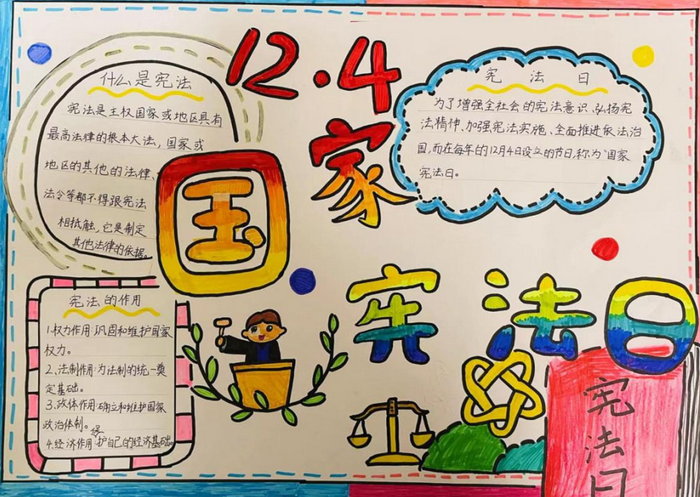 12.4
国家
宪法日
什么是宪法
宪法是主权国家或地区具有
最高法律的根本大法，国家或
地区的其他的法律、
法令等都不得跟宪法
相抵触，它是制定
其他法律的依据。
宪法日
为了增强全社会的宪法意识、弘扬宪
法精神、加强宪法实施、全面推进依法治
国，而在每年的12月4日设立的节日，称为"国家
宪法日。
宪法的作用
1.权力作用：巩固和维护国家
权力。
2、法制作用：为法制的统一奠
定基础。
3、政体作用：确立和维护国家
政治体制。
4.经济作用：护自己的经济基础
宪法日